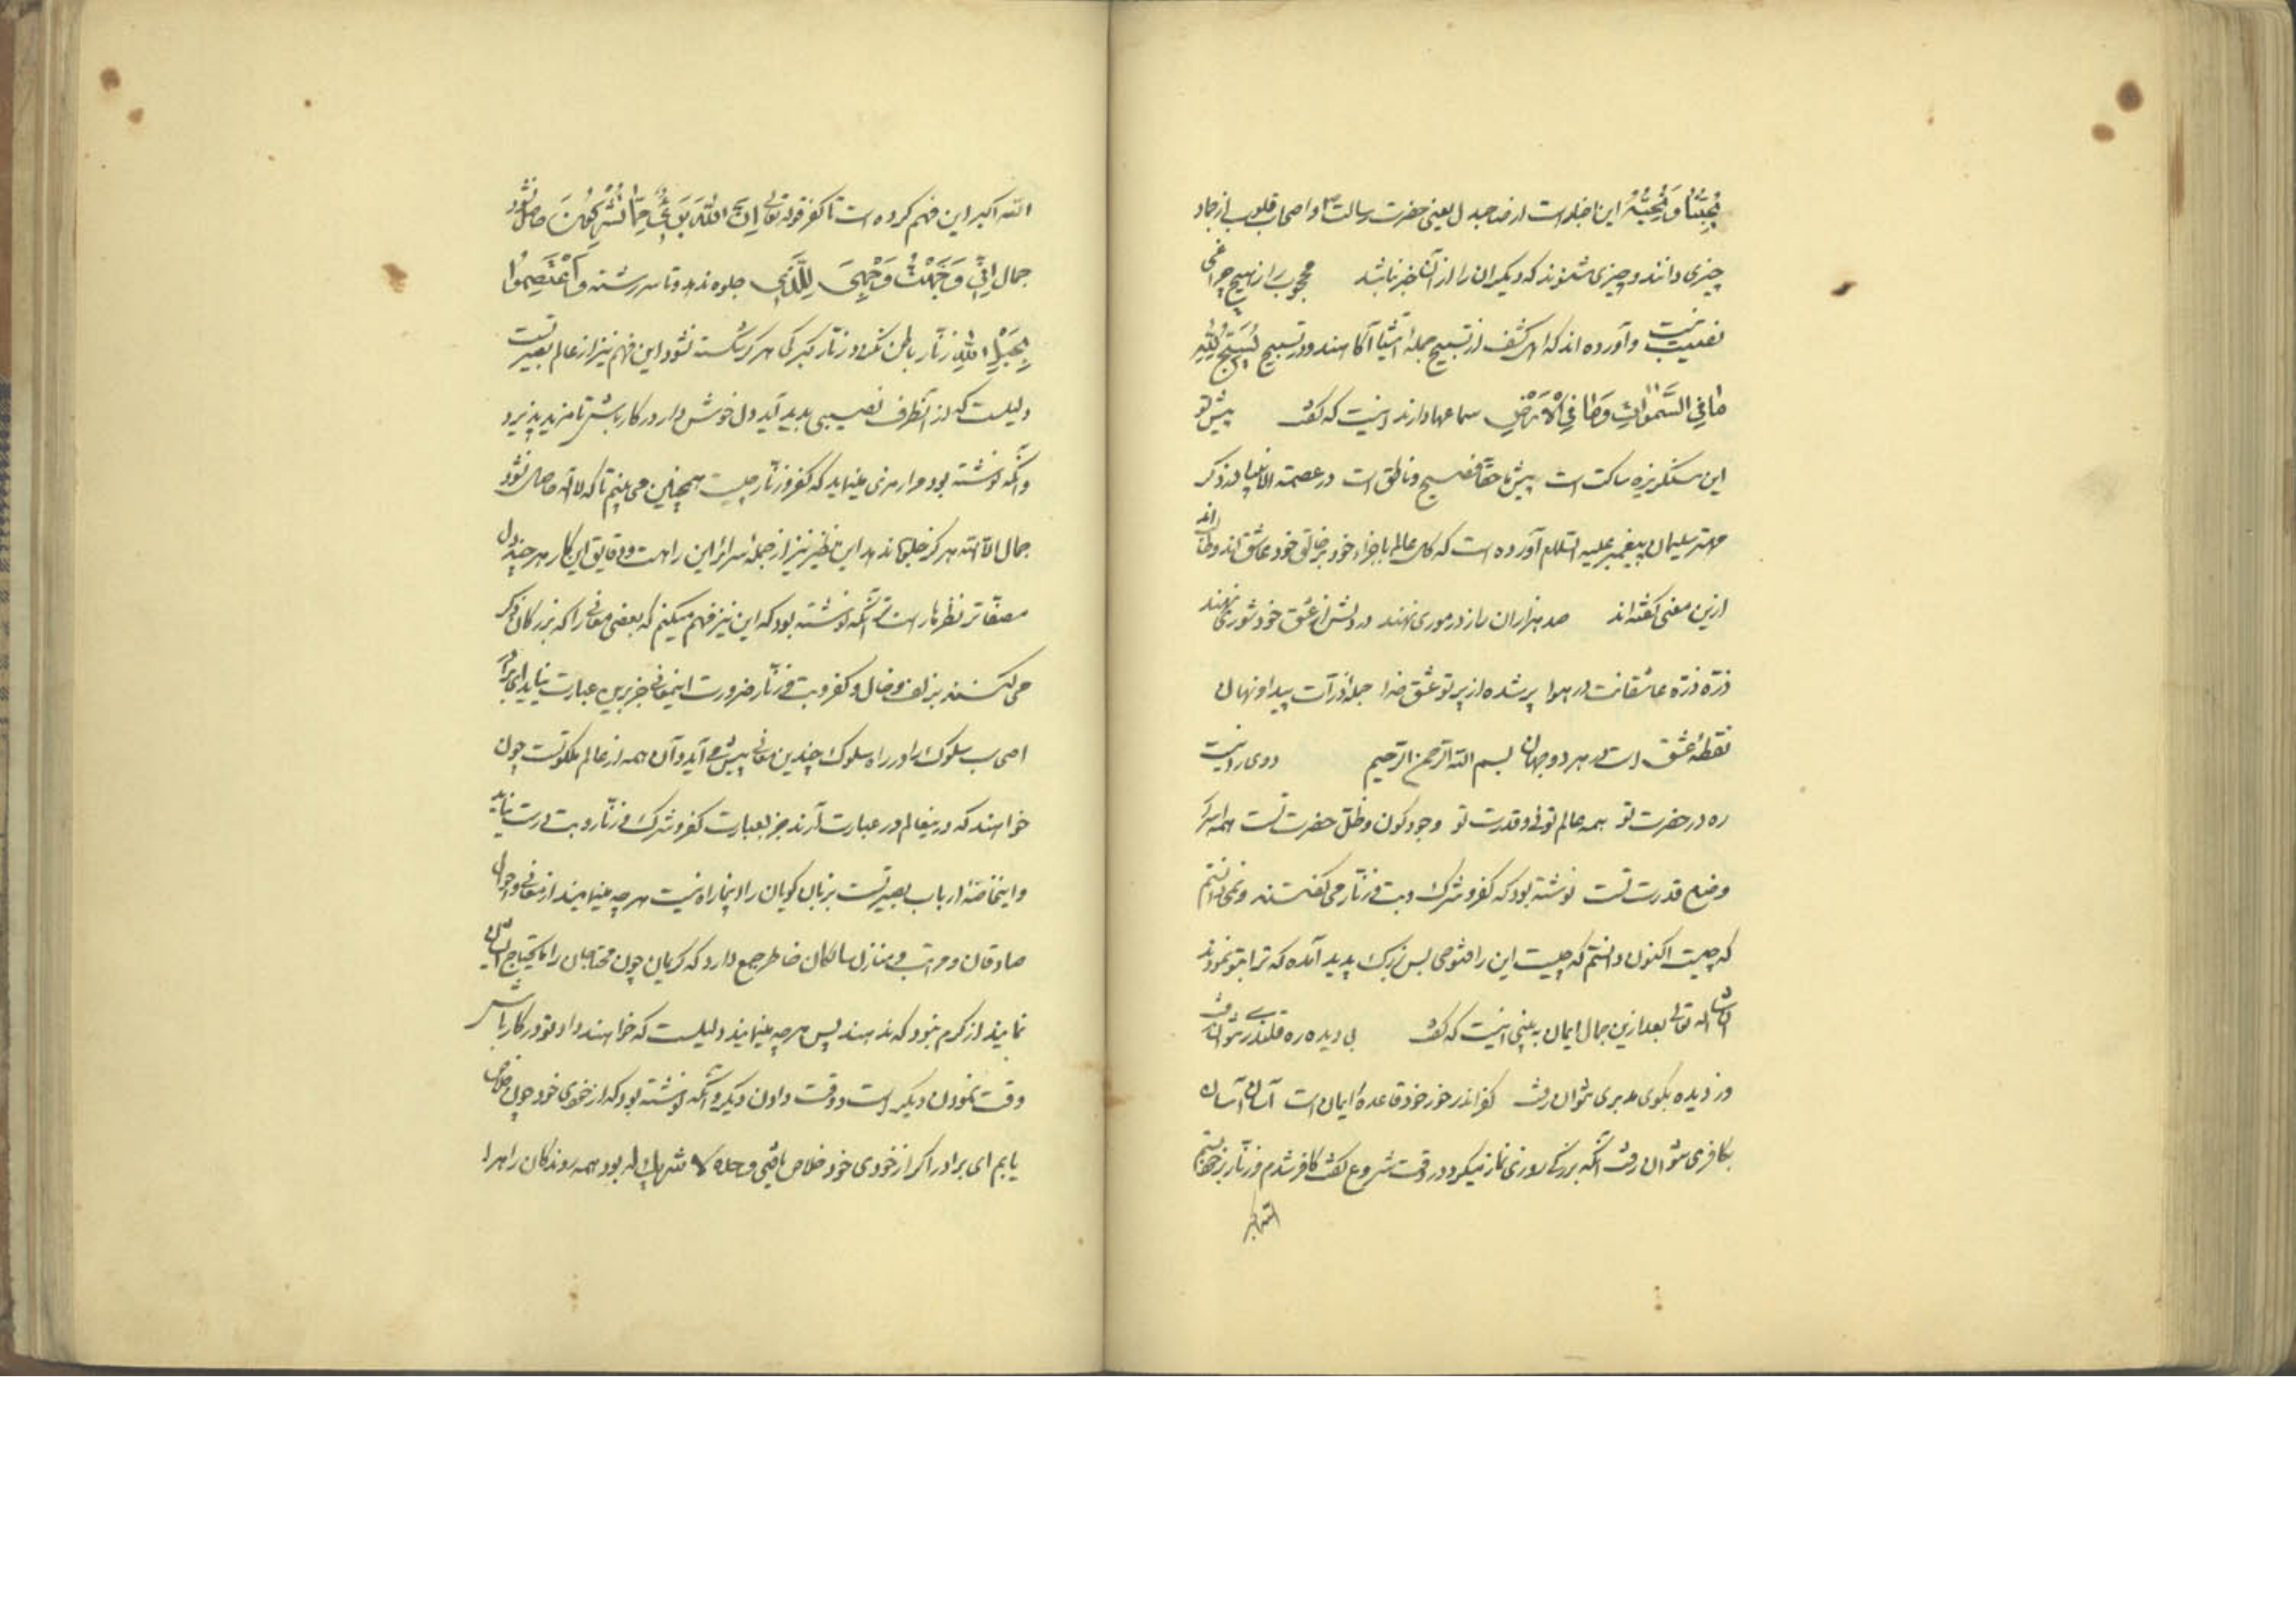 یُحِبُّنَا وَ نُحِبُّهُ این اخبار است از ضد جبل یعنی حضرت رسالت و اصحاب قلوب از جماد
چیزی دانند و چیزی شنوند که دیگران را از آن خبر نباشد محجوب را ز هیچ چراغی
نصیب نیست و آورده اند که اهل کشف از تسبیح جمله اشیا آگاهند و در تسبیح یُسَبِّحُ لِلّٰهِ
مَا فِی السَّمٰوَاتِ وَمَا فِی الْاَرْضِ سماعها دارند اینست که گفت پیش تو
این سنگریزه ساکت است پیش ما فصیح و ناطق است در عصمة الانبیا در ذکر
مهتر سلیمان پیغمبر علیه السلام آورده است که کل عالم باجزاء خود بر خالق خود عاشق اند
ازین معنی گفته اند صد هزاران راز در موری نهند در دلش از عشق خود شوری نهند
ذرّه ذرّه عاشقانت در هوا پر شده از پرتو عشق خدا جمله ذرّات پیدا و نهان
نقطهٔ عشق است در هر دو جهان بسم الله الرحمن الرحیم دوی را نیست
ره در حضرت تو همه عالم توئی و قدرت تو وجود کون و ظل حضرت تست همه اسرار
وضع قدرت تست نوشته بود که کفر و شرک و بت و زنّار می گفتند و نمی دانستم
که چیست اکنون دانستم که چیست این را فتوحی بس بزرگ پدید آمده که ترا بتو نمودند
ان شاء الله تعالی بعد ازین جمال ایمان به بینی اینست که گفت بی دیده ره قلندری نتوان رفت
دزدیده بکوی مدبری نتوان رفت کفر اندر خور خود قاعدهٔ ایمان است آسان آسان
بکافری نتوان رفت آنکه بزرگی روزی نماز میکرد در وقت شروع گفت کافر شدم و زنّار بر خود بستم
الله اکبر
الله اکبر این فهم کرده است تا کفر قوله تعالی اِنَّ اللّٰهَ بَرِیءٌ مِمَّا تُشْرِکُونَ حاصل نشود
جمال اِنِّی وَجَّهْتُ وَجْهِیَ لِلَّذِی جلوه ندهد و تا سر رشته وَاعْتَصِمُوا
بِحَبْلِ اللّٰهِ زنّار باطن نگردد زنّار کبرگی هرگز گسسته نشود این فهم نیز از عالم بصیرتست
دلیلست که از آنطرف نصیبی پدید آید دل خوش دار در کار باش تا مزید پذیرد
و آنکه نوشته بود مرا رمزی مینماید که کفر و زنّار چیست همچنین می بینم تا که لا اله حاصل نشود
جمال الا الله هرگز جلوه ندهد این نظیر نیز از جملهٔ اسرار این راهست و دقایق این کار هر چند دل
مصفّاتر نظر باریکتر آنکه نوشته بود که این نیز فهم میکنم که بعضی معانی را که بزرگان ذکر
می کنند بزلف و خال و کفر و بت و زنّار ضرورت اینمعانی جز بدین عبارت نیاید ای برادر
اصحاب سلوک را در راه سلوک چندین معانی پیش می آید و آن همه از عالم ملکوتست چون
خواهند که در ینعالم در عبارت آرند جز بعبارت کفر و شرک و زنّار و بت درست نیاید
و اینجا خاصهٔ ارباب بصیرتست بزبان گویان را اینجا راه نیست هر چه مینمایند از معانی و احوال
صادقان و مراتب و منازل سالکان خاطر جمع دارد که کریمان چون محتاجان را مایحتاج ایشان
نمایند از کرم نبود که ندهند پس هر چه مینمایند دلیلست که خواهند داد تو در کار باش
وقت نمودن دیگر است و وقت دادن دیگر و آنکه نوشته بود که از خودی خود چون خلاص
یابم ای برادر اگر از خودی خود خلاص یافتی وحده لا شریک له بود همه روندگان را هراس